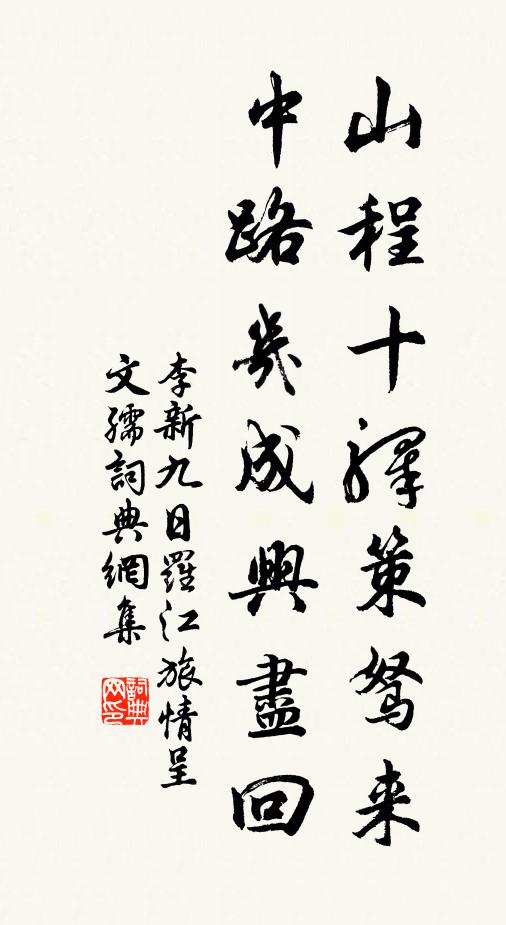 山程十驛策駑来
中路幾成興盡回
李新九日羅江旅情呈
文孺詞典網集
詞典网印